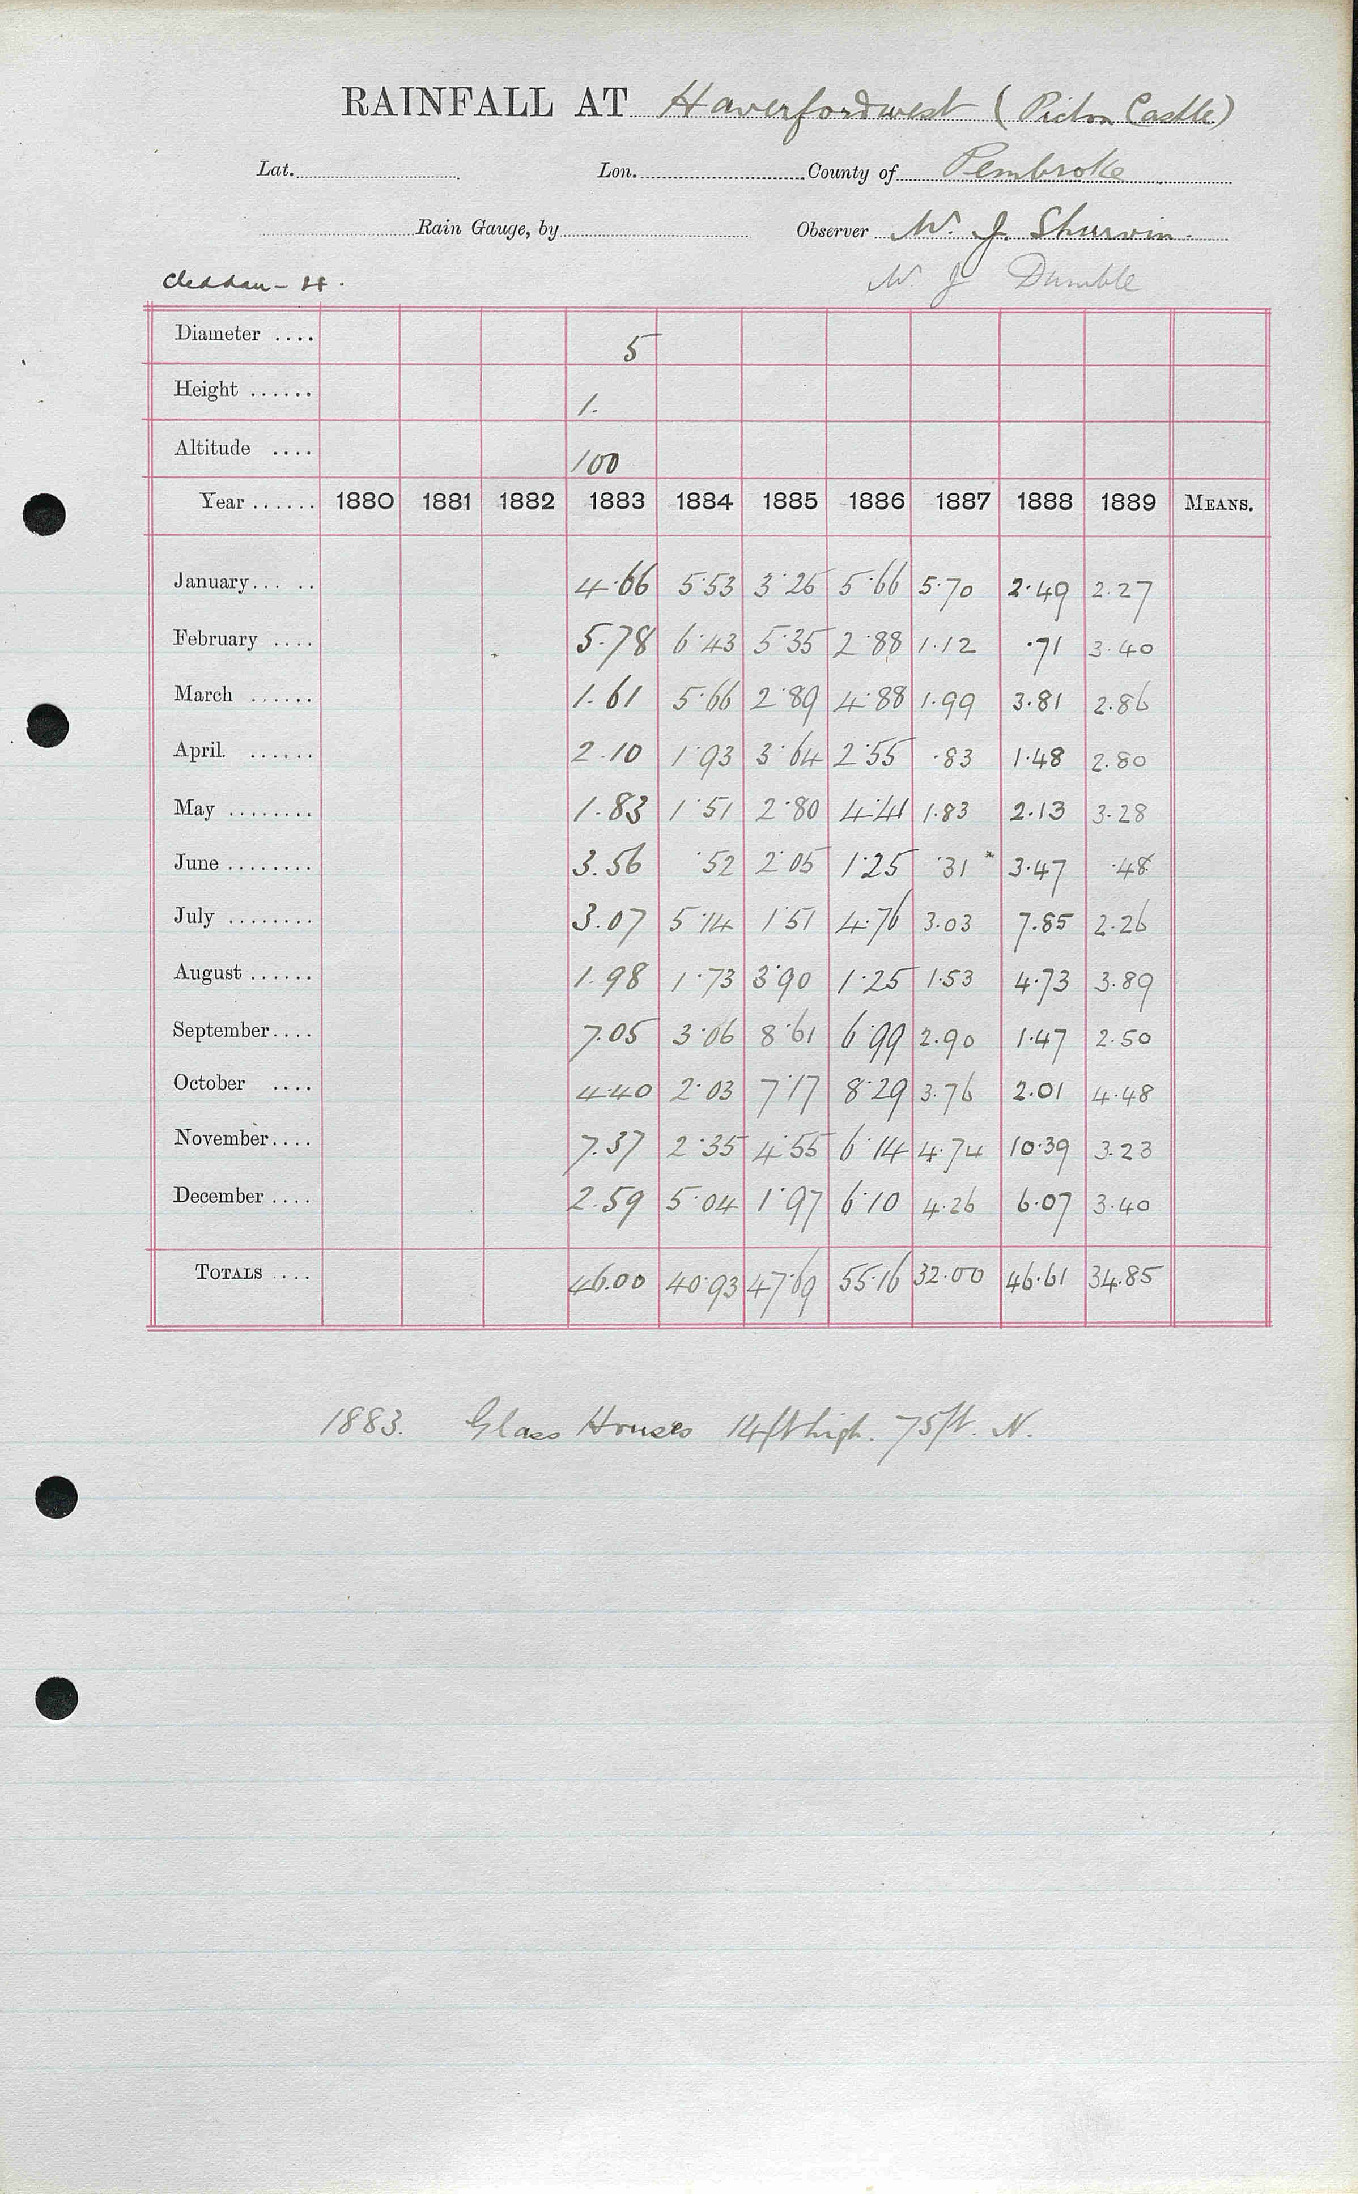 RAINFALL AT Haverfordwest (Picton Castle)
Lat. Lon. County of Pembroke
Rain Gauge, by Observer W. J. Shurvin.
Cleddau - H. W. J Dumble
Diameter .... 5
Height ...... 1.
Altitude .... 100
Year ...... 1880 1881 1882 1883 1884 1885 1886 1887 1888 1889 MEANS.
January... .. 4.66 5.53 3.25 5.66 5.70 2.49 2.27
February .... 5.78 6.43 5.35 2.88 1.12 .71 3.40
March ...... 1.61 5.66 2.89 4.88 1.99 3.81 2.86
April ...... 2.10 1.93 3.64 2.55 .83 1.48 2.80
May ........ 1.83 1.51 2.80 4.41 1.83 2.13 3.28
June ........ 3.56 .52 2.05 1.25 .31 3.47 .48
July ........ 3.07 5.14 1.51 4.76 3.03 7.85 2.26
August ...... 1.98 1.73 3.90 1.25 1.53 4.73 3.89
September.... 7.05 3.06 8.61 6.99 2.90 1.47 2.50
October .... 4.40 2.03 7.17 8.29 3.76 2.01 4.48
November.... 7.37 2.35 4.55 6.14 4.74 10.39 3.23
December .... 2.59 5.04 1.97 6.10 4.26 6.07 3.40
TOTALS .... 46.00 40.93 47.69 55.16 32.00 46.61 34.85
1883. Glass Houses 14ft high. 75ft. N.